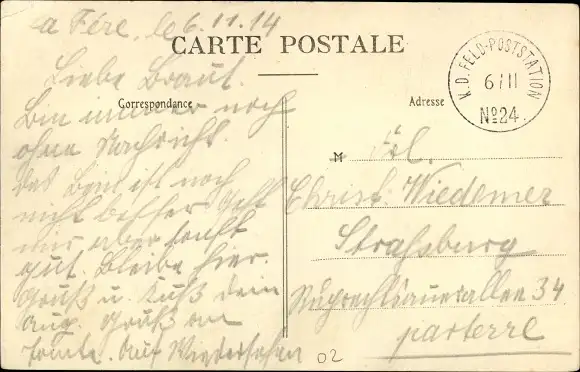 La Fére, le 6.11.14
CARTE POSTALE
Correspondance
Adresse
K.D. FELD-POSTSTATION
6/11
No 24.
Liebe Braut.
Bin immer noch
ohne Nachricht.
Das Bein ist noch
nicht besser geht
mir aber sonst
gut. Bleibe hier.
Gruß u. Kuß dein
Aug. Gruß an
Tante. Auf Wiedersehen
M Frl.
Christ. Wiedemer
Strassburg
Ruprechtsauerallee 34
parterre
02